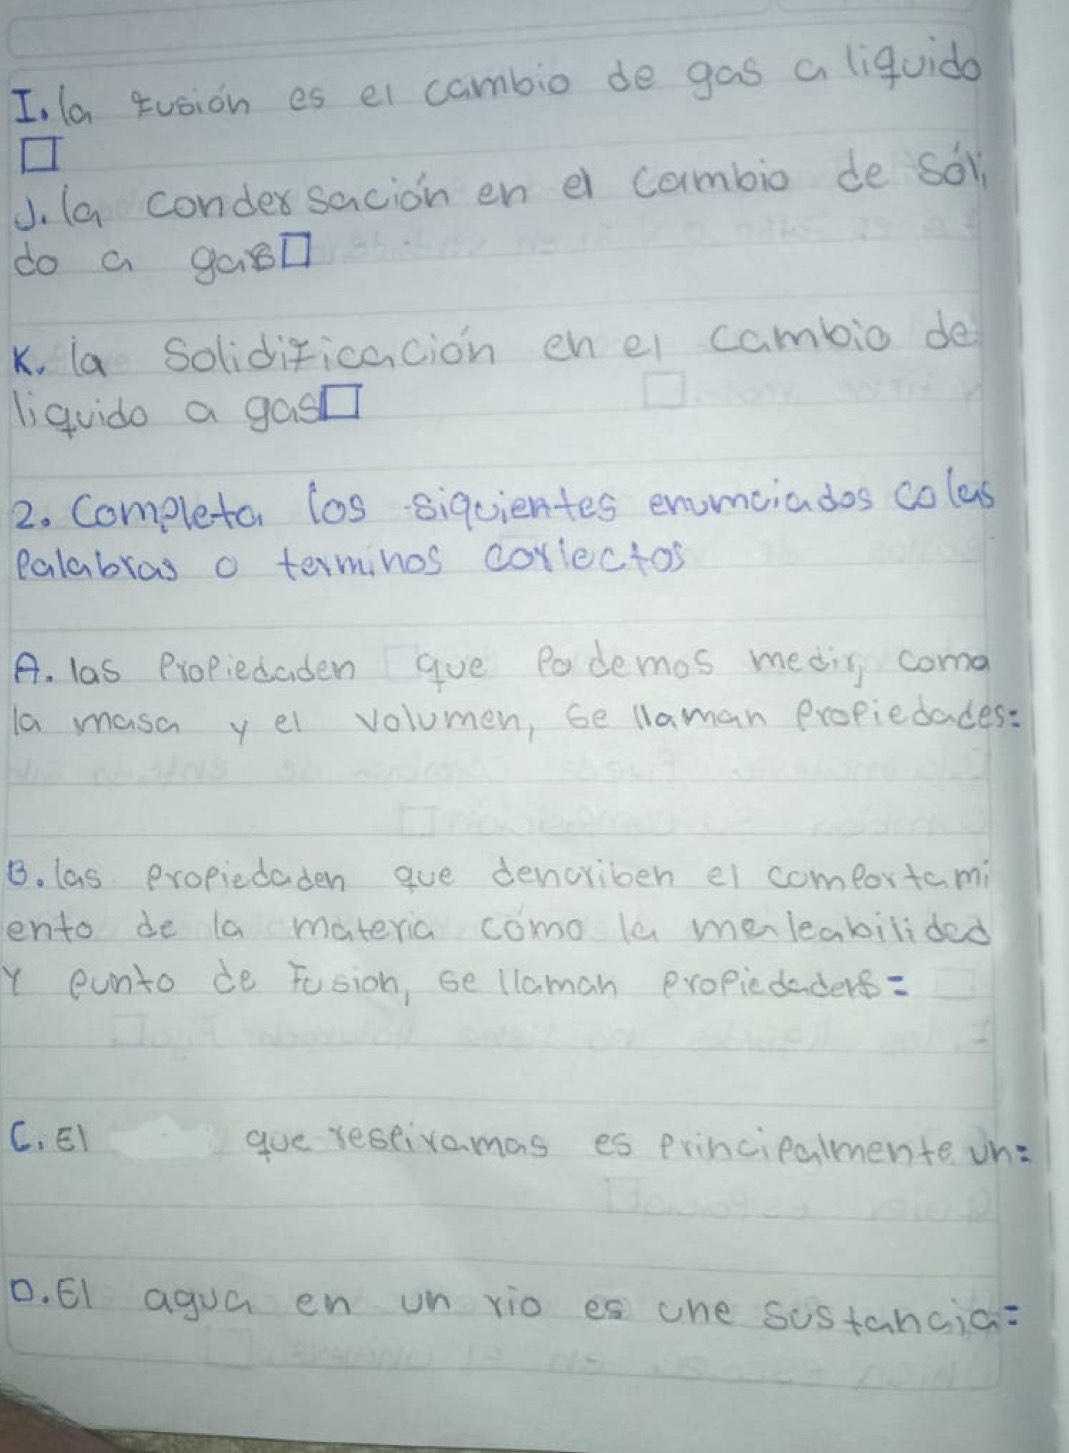 I. la fusión es el cambio de gas a liquido
J. la condersación en el cambio de sóli
do a gas
K. la Solidificación en el cambio de
liquido a gas
2. Completa los siquientes enumciados co las
Palabras o terminos corlectos
A. las Propiedaden que Podemos medir, coma
la masa y el volumen, se llaman Propiedades:
B. las propiedaden que dencriben el comportami
ento de la materia cómo la meileabilided
Y punto de Fusion, se llaman propiededers=
C. El que respiramas es principalmente un=
D. El agua en un rio es une sustancia=